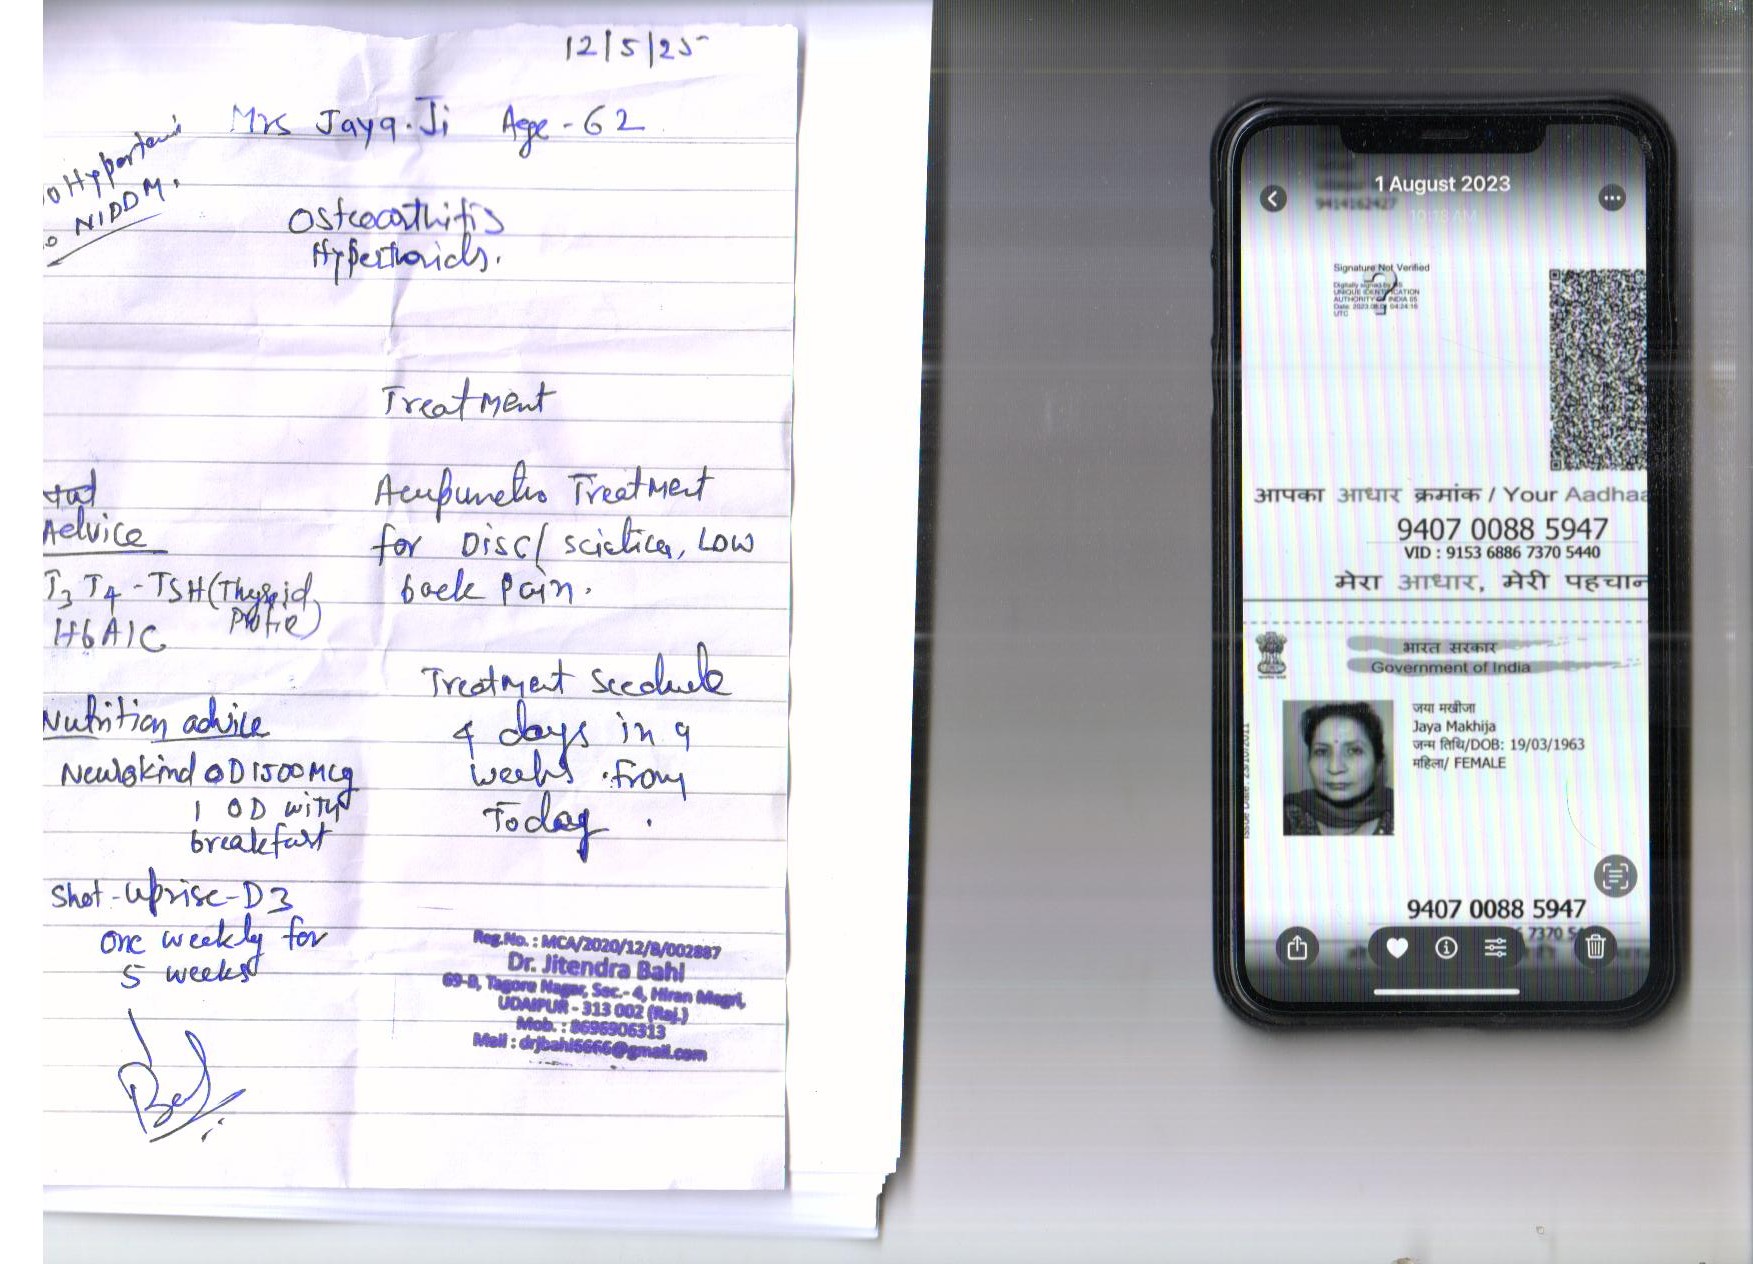 12/5/25
Mrs Jaya.Ji Age - 62
o Hypertensi
o NIDDM.
Osteoarthitis
Hyperthoids.
Treatment
Advice
T3 T4 - TSH (Thyroid
Profie)
HbA1C
Nutrition advice
OD 1500 Mcg
1 OD with
breakfast
Shot - Uprise - D3
one weekly for
5 weeks
Acupunctu Treatment
for Disc/ sciatica, Low
back pain.
Treatment Scedule
4 days in 9
weeks . from
Today .
Reg.No. : MCA/2020/12/B/002887
Dr. Jitendra Bahl
69-B, Tagore Nagar, Sec.- 4, Hiran Magri,
UDAIPUR - 313 002 (Raj.)
Mob. : 8696906313
Mail : drjbahl6666@gmail.com
1 August 2023
9414162427
10:18 AM
Signature Not Verified
Digitally signed by DS
UNIQUE IDENTIFICATION
AUTHORITY OF INDIA 05
UTC
आपका आधार क्रमांक / Your Aadhaa
9407 0088 5947
VID : 9153 6886 7370 5440
मेरा आधार, मेरी पहचान
भारत सरकार
Government of India
Issue Date: 23/10/2011
जया मखीजा
Jaya Makhija
जन्म तिथि/DOB: 19/03/1963
महिला/ FEMALE
9407 0088 5947
7370 5